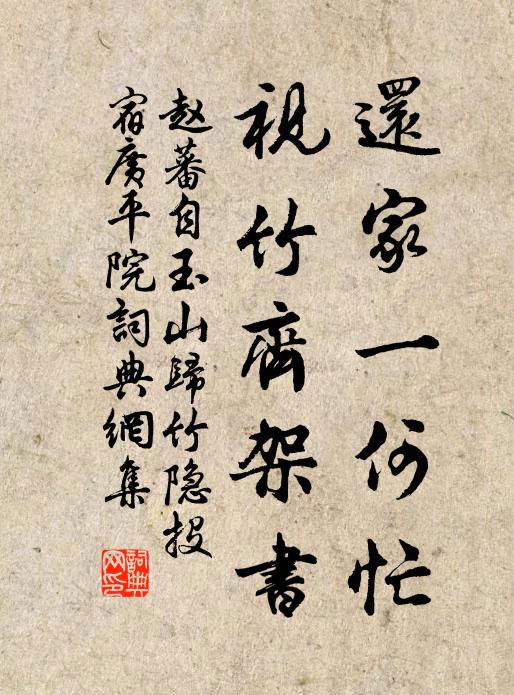 還家一何忙
視竹齊架書
赵蕃自玉山歸竹隐投
宿廣平院詞典網集
詞典网印